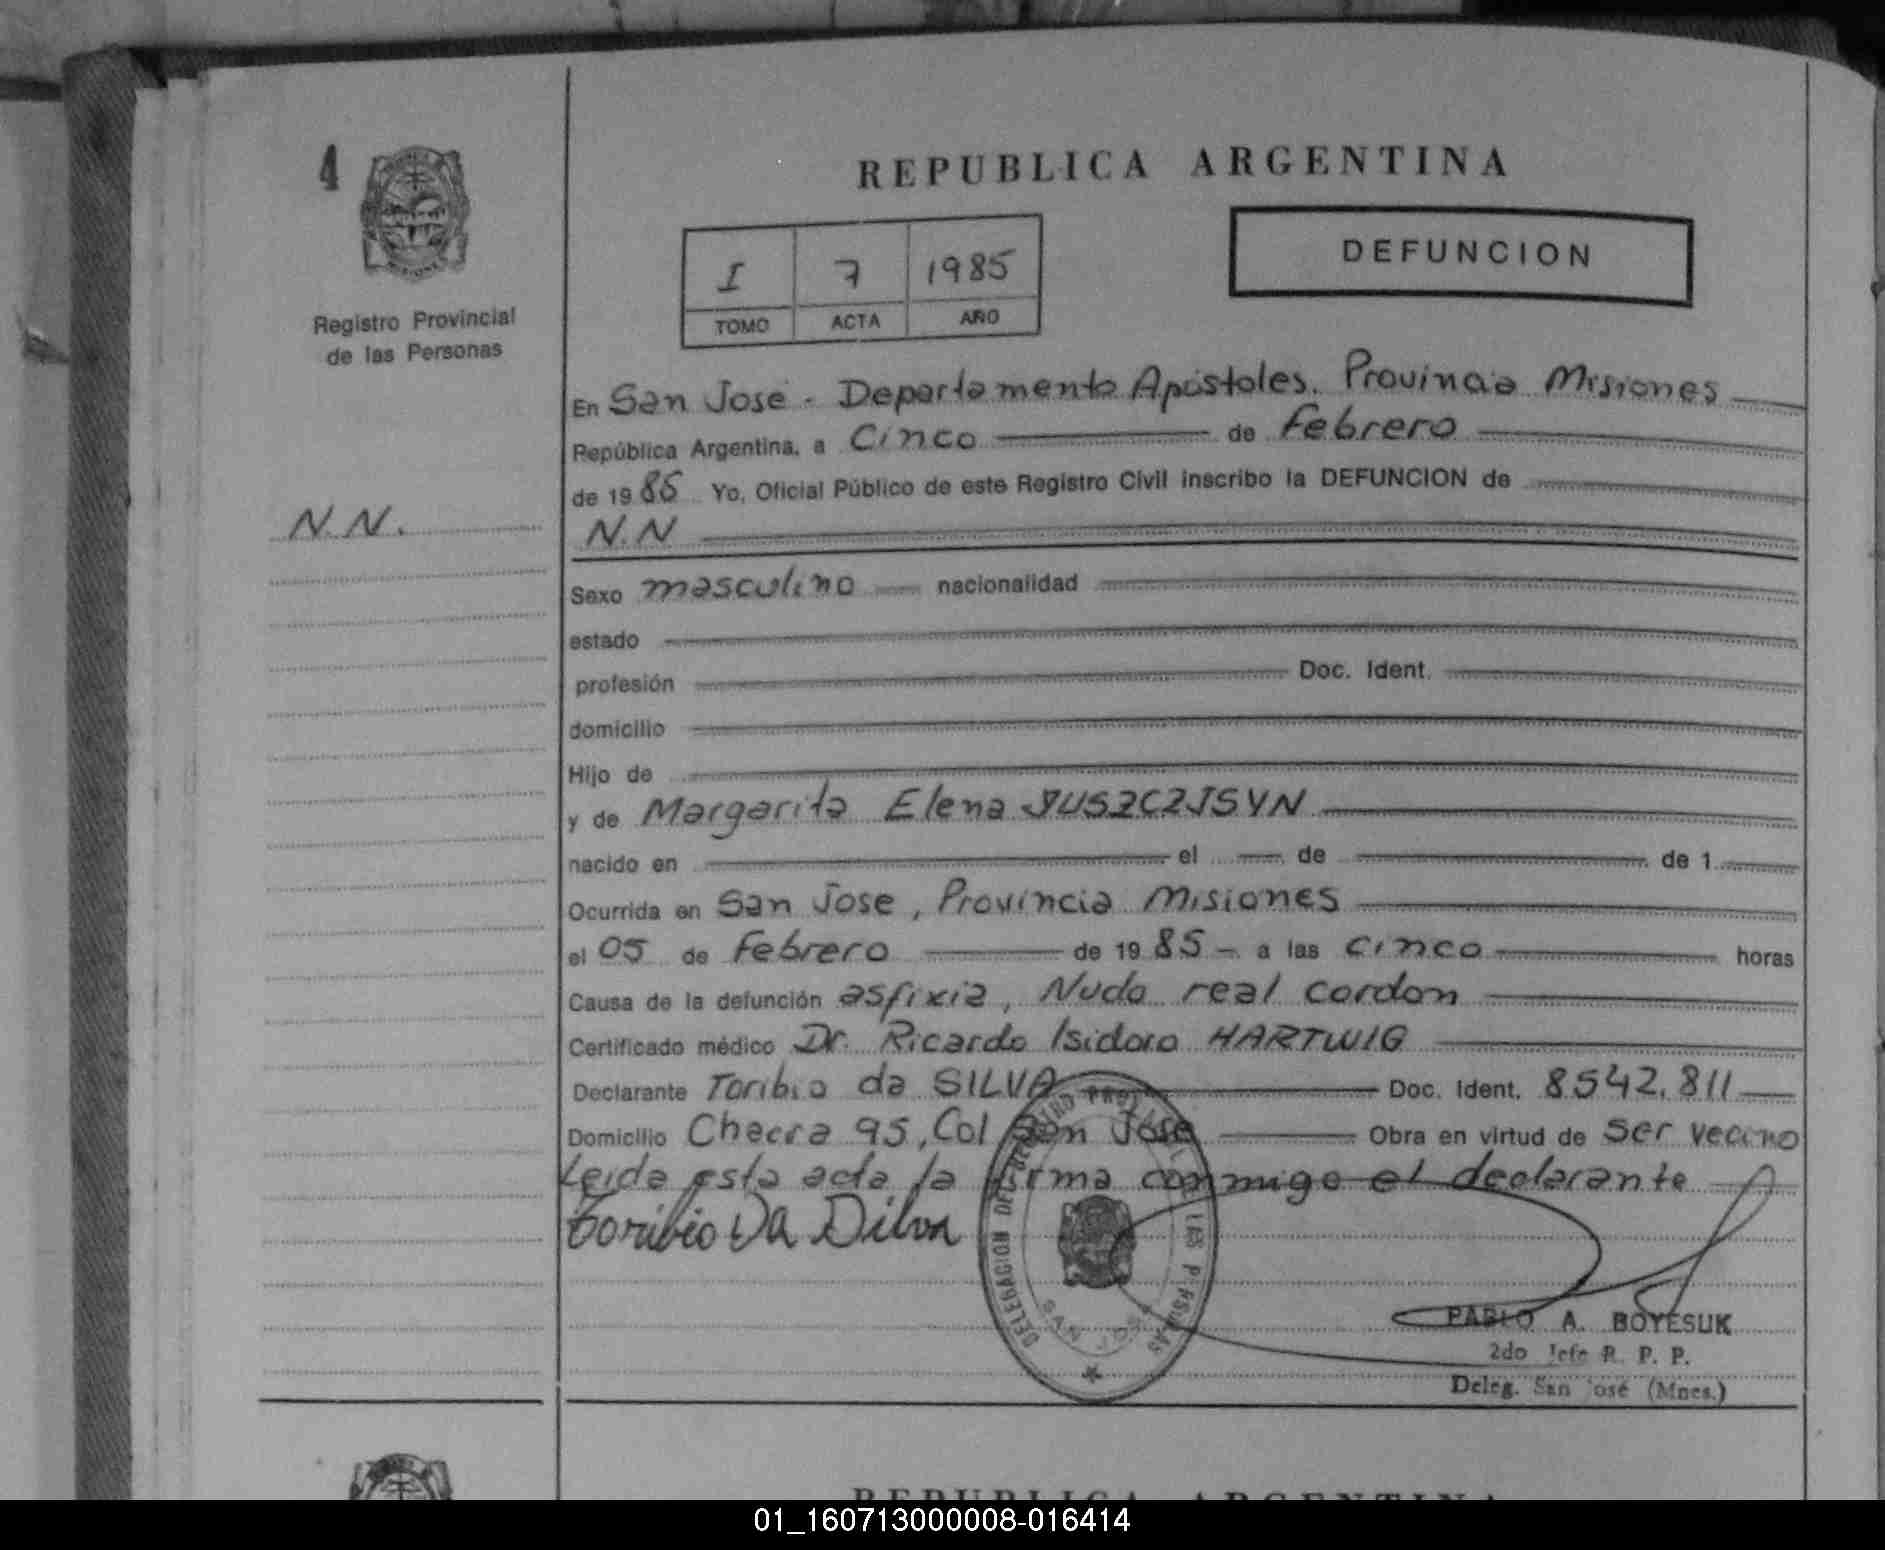 4
REPUBLICA ARGENTINA
I 7 1985
TOMO ACTA AÑO
DEFUNCION
Registro Provincial
de las Personas
N.N.
En San Jose - Departamento Apóstoles. Provincia Misiones
República Argentina, a Cinco de Febrero
de 1985 Yo, Oficial Público de este Registro Civil inscribo la DEFUNCION de
N.N
Sexo masculino nacionalidad
estado
profesión Doc. Ident.
domicilio
Hijo de
y de Margarita Elena
nacido en el de de 1
Ocurrida en San Jose, Provincia Misiones
el 05 de Febrero de 1985 - a las cinco horas
Causa de la defunción asfixia, Nudo real cordon
Certificado médico Dr. Ricardo Isidoro HARTWIG
Declarante Toribio da SILVA Doc. Ident. 8542.811
Domicilio Chacra 95, Col San Jose Obra en virtud de Ser vecino
Leida esta acta la firma conmigo el declarante
Toribio Da Silva
DELEGACION DEL REGISTRO PROVINCIAL DE LAS PERSONAS
SAN JOSE
PABLO A. BOYESUK
2do Jefe R. P. P.
Deleg. San José (Mnes.)
REPUBLICA ARGENTINA
01_160713000008-016414